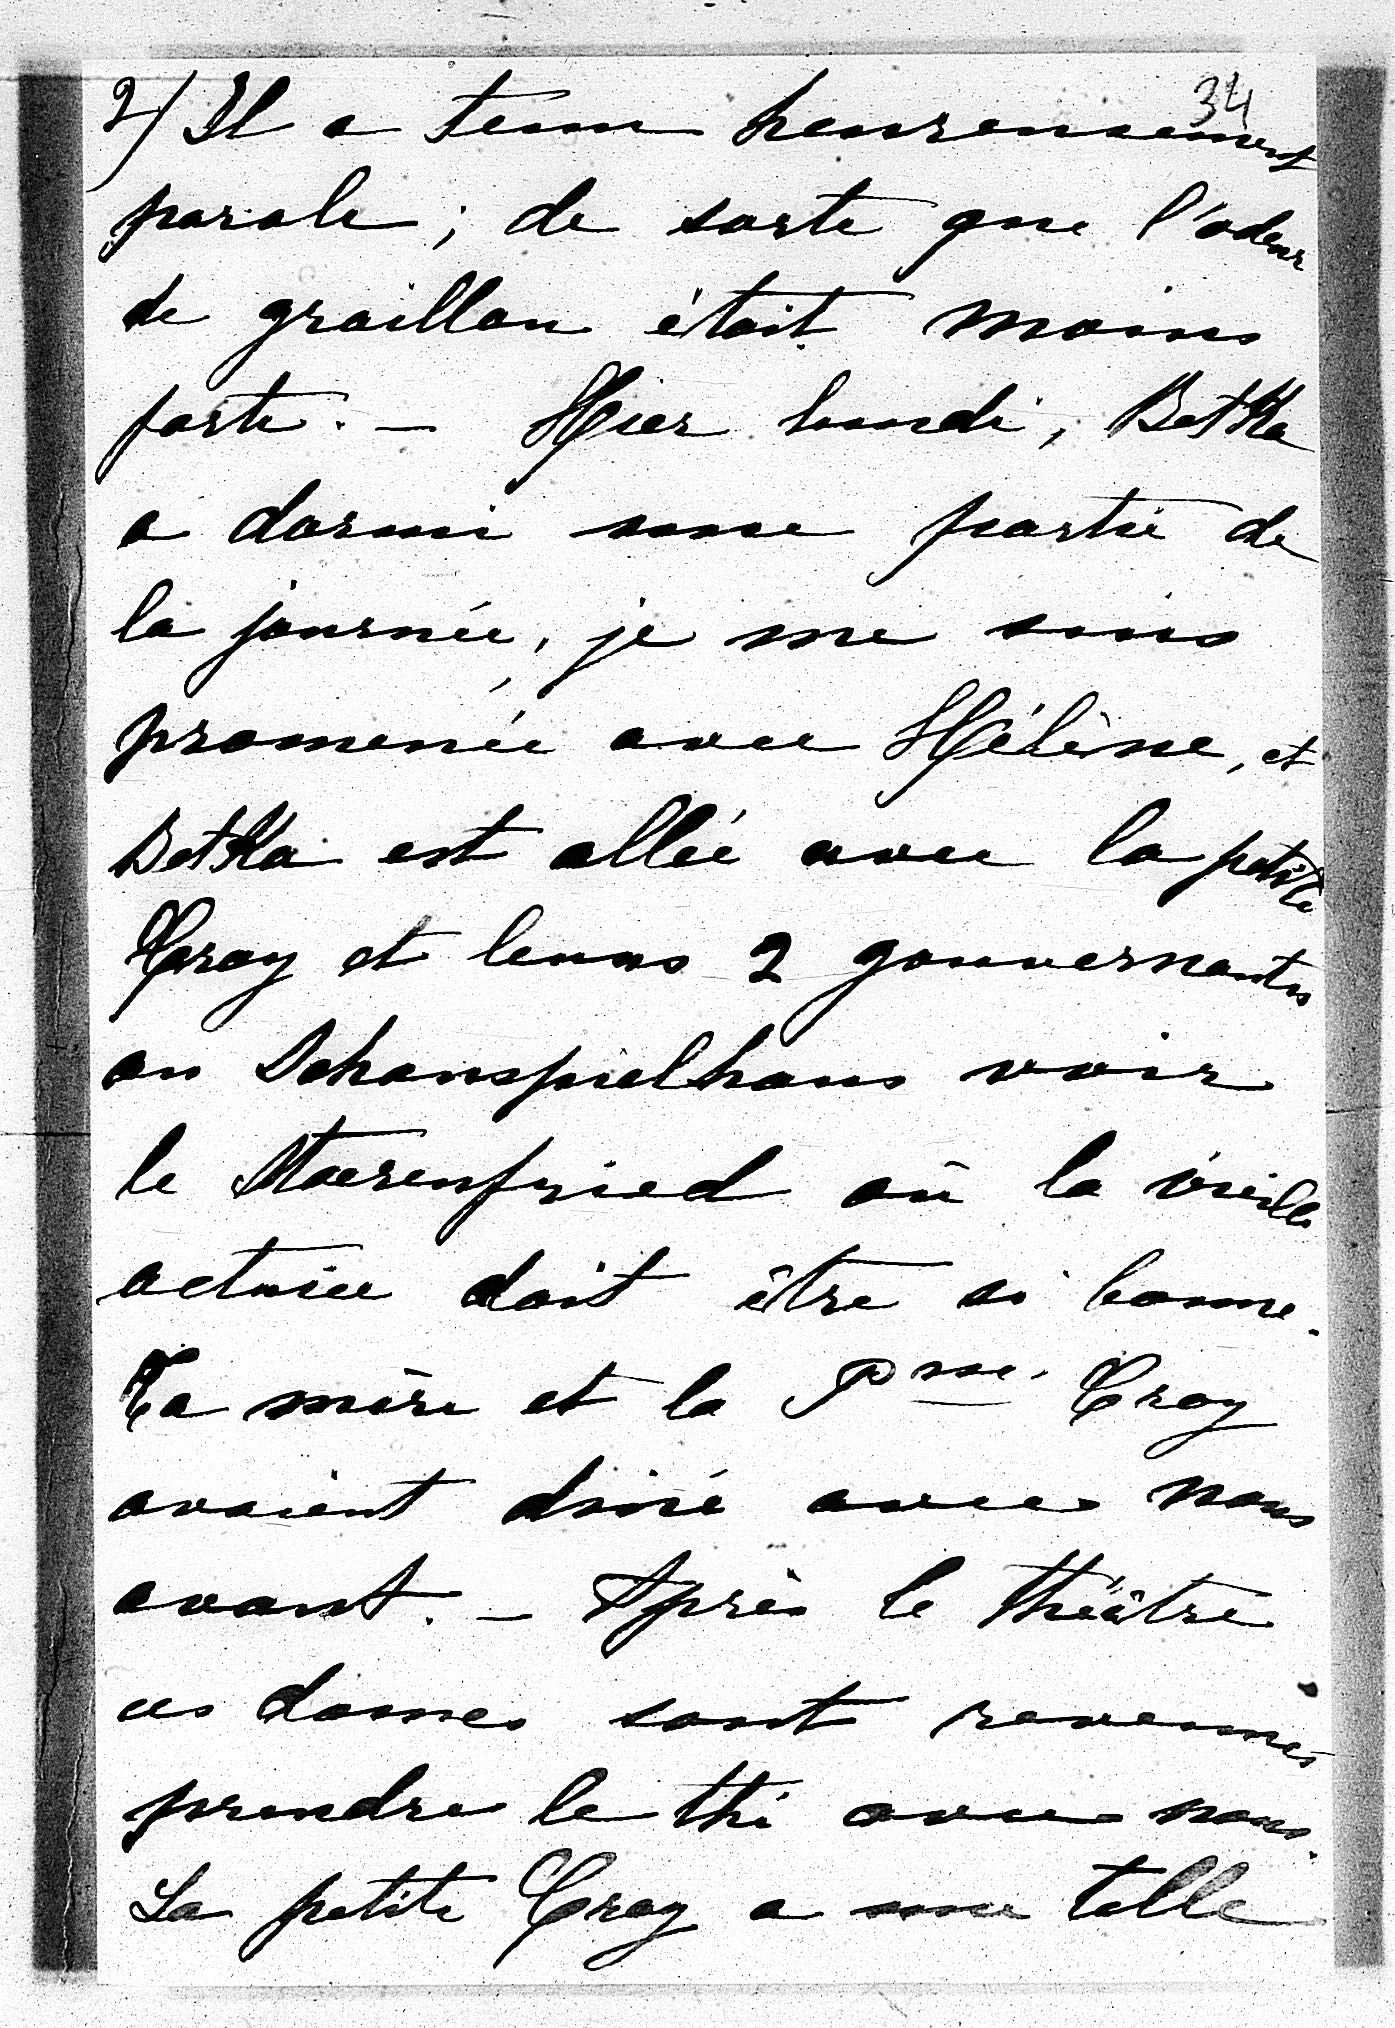 34
2) Il a tenu heureusement
parole ; de sorte que l'odeur
de graillon était moins
forte. — Hier lundi, Betka
a dormi une partie de
la journée, je me suis
promenée avec Hélène, et
Betka est allée avec la petite
Croy et leurs 2 gouvernantes
au Schauspielhaus voir
le Stoerenfried où la vieille
actrice doit être si bonne.
Ta mère et la Psse. Croy
avaient diné avec nous
avant. — Après le théâtre
ces dames sont revenues
prendre le thé avec nous.
La petite Croy a une telle